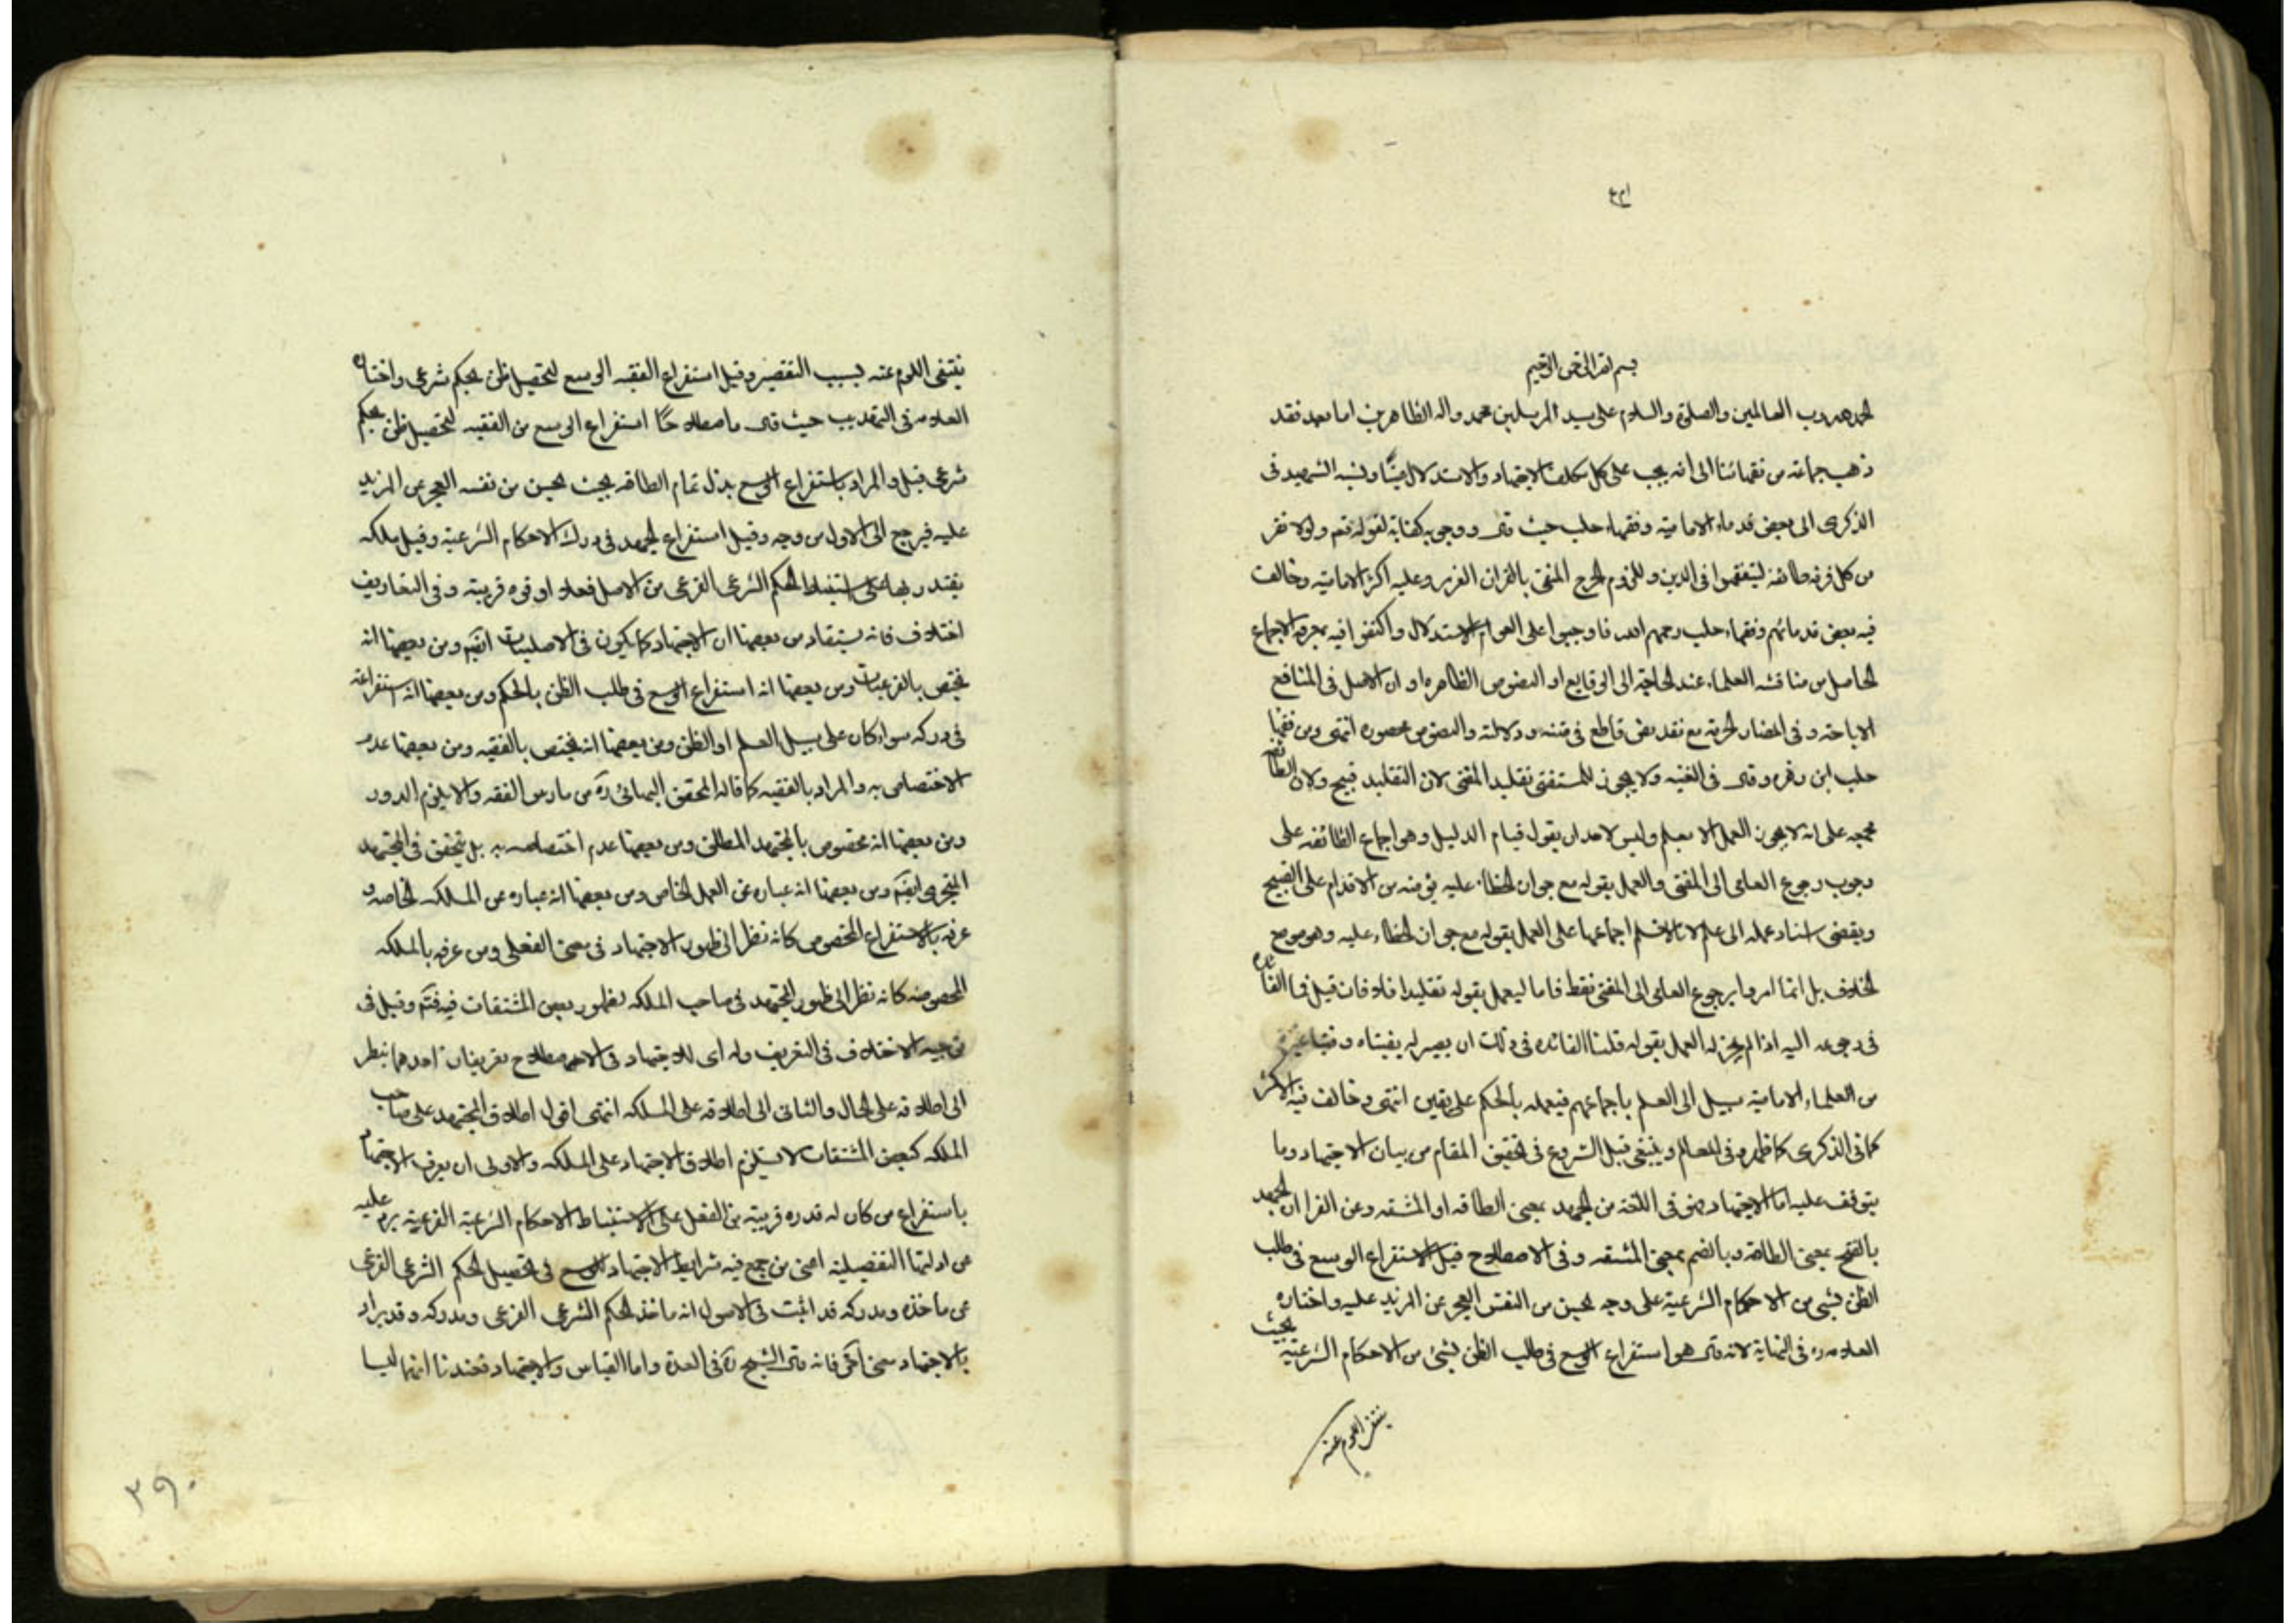 بسم الله الرحمن الرحيم
الحمد لله رب العالمين والصلوة والسلام على سيد المرسلين محمد واله الطاهرين اما بعد فقد
ذهب جماعة من فقهائنا الى انه يجب على كل مكلف الاجتهاد والاستدلال عينا ونسبه الشهيد فى
الذكرى الى بعض قدماء الامامية وفقهاء حلب حيث قال ووجوبه كفاية لقوله تعم ولولا نفر
من كل فرقة طائفة ليتفقهوا فى الدين وللزوم الحرج المنفى بالقران العزيز وعليه اكثر الامامية وخالف
فيه بعض قدمائهم وفقهاء حلب رحمهم الله فاوجبوا على العوام الاستدلال واكتفوا فيه بمعرفة الاجماع
الحاصل من مناقشة العلماء عند الحاجة الى الوقايع او النصوص الظاهره او ان الاصل فى المنافع
الاباحة وفى المضار الحرمة مع فقد نص قاطع فى متنه ودلالته والنصوص محصوره انتهى ومن فقهاء
حلب ابن زهره وقال فى الغنيه ولا يجوز للمستفتى تقليد المفتى لان التقليد قبيح ولان الطائفة
مجمعه على انه لا يجوز العمل الا بعلم وليس لاحد ان يقول قيام الدليل وهو اجماع الطائفه على
وجوب رجوع العامى الى المفتى والعمل بقوله مع جواز الخطاء عليه يؤمنه من الاقدام على القبيح
ويقتضى اسناد عمله الى علم لانا لا نسلم اجماعها على العمل بقوله مع جواز الخطاء عليه وهو موضع
الخلاف بل انما امروا برجوع العامى الى المفتى فقط فاما ليعمل بقوله تقليدا فلا فان قيل فما الفائدة
فى رجوعه اليه اذا لم يجز له العمل بقوله قلنا الفائده فى ذلك ان يصير له بفتياه وفتيا غيره
من العلماء الامامية سبيل الى العلم باجماعهم فيعمل بالحكم على يقين انتهى وخالف فيه الاكثر
كما فى الذكرى كما ظهره فى المعالم وينبغى قبل الشروع فى تحقيق المقام من بيان الاجتهاد وما
يتوقف عليه اما الاجتهاد فهو فى اللغة من الجهد بمعنى الطاقه او المشقه وعن الفرا ان الجهد
بالفتح بمعنى الطاقة وبالضم بمعنى المشقه وفى الاصطلاح قيل استفراغ الوسع فى طلب
الظن بشىء من الاحكام الشرعية على وجه يحس من النفس العجز عن المزيد عليه واختاره
العلامه ره فى النهاية لانه قال هو استفراغ الوسع فى طلب الظن بشىء من الاحكام الشرعية بحيث
ينتفى اللوم عنه
ينتفى اللوم عنه بسبب التقصير وقيل استفراغ الفقيه الوسع لتحصيل ظن بحكم شرعى واختاره
العلامه فى التهذيب حيث قال اصطلاحا استفراغ الوسع من الفقيه لتحصيل ظن بحكم
شرعى قيل والمراد باستفراغ الوسع بذل تمام الطاقه بحيث يحس من نفسه العجز عن المزيد
عليه فيرجع الى الاول من وجه وقيل استفراغ الجهد فى درك الاحكام الشرعية وقيل ملكه
يقتدر بها على استنباط الحكم الشرعى الفرعى من الاصل فعلا او قوه قريبة وفى التعاريف
اختلاف فانه يستفاد من بعضها ان الاجتهاد كما يكون فى الاصليات ايضم ومن بعضها انه
يختص بالفرعيات ومن بعضها انه استفراغ الوسع فى طلب الظن بالحكم ومن بعضها انه استفراغه
فى دركه سواء كان على سبيل العلم او الظن ومن بعضها انه يختص بالفقيه ومن بعضها عدم
الاختصاص به والمراد بالفقيه كما قاله المحقق البهائى ره من مارس الفقه والا يلزم الدور
ومن بعضها انه مخصوص بالمجتهد المطلق ومن بعضها عدم اختصاصه به بل يتحقق فى المجتهد
المتجزى ايضم ومن بعضها انه عباره عن العمل الخاص ومن بعضها انه عباره عن الملكه الخاصه و
عرفه بالاستفراغ المخصوص كانه نظر الى ظهور الاجتهاد فى معنى الفعلى ومن عرفه بالملكه
المخصوصه كانه نظر الى ظهور المجتهد فى صاحب الملكه لظهور بعض المشتقات فيه فتم وقيل فى
توجيه الاختلاف فى التعريف وله اى للاجتهاد فى الاصطلاح تعريفان احدهما ينظر
الى اطلاقه على الحال والثانى الى اطلاقه على الملكه انتهى اقول اطلاق المجتهد على صاحب
الملكه كبعض المشتقات لا يستلزم اطلاق الاجتهاد على الملكه والاولى ان يعرف الاجتهاد
باستفراغ من كان له قدره قريبة من الفعل على الاستنباط الاحكام الشرعية الفرعية
من ادلتها التفصيلية اعنى من جمع فيه شرايط الاجتهاد الوسع فى تحصيل الحكم الشرعى الفرعى
عن ماخذه ومدركه قد اثبت فى الاصول انه ماخذ الحكم الشرعى الفرعى ومدركه وقد يراد
بالاجتهاد معنى اخر فانه قال الشيخ ره فى العدة واما القياس والاجتهاد فعندنا انهما ليسا
٣٩٠